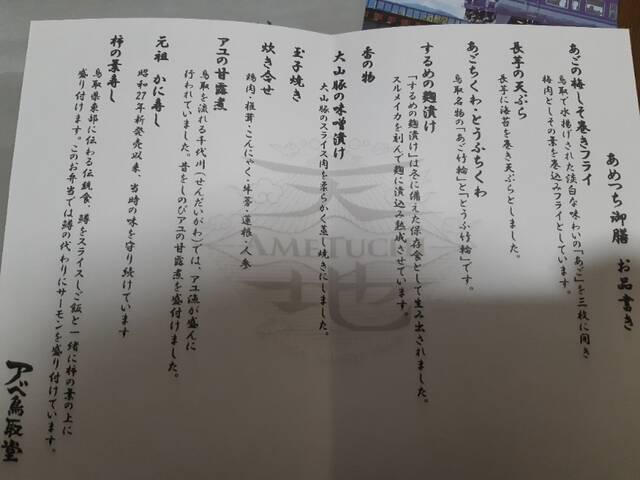 あめつち御膳 お品書き
あごの梅しそ巻きフライ
鳥取で水揚げされた淡白な味わいの「あご」を三枚に開き
梅肉としその葉を巻込みフライとしています。
長芋の天ぷら
長芋に海苔を巻き天ぷらとしました。
あごちくわ・とうふちくわ
鳥取名物の「あご竹輪」と「とうふ竹輪」です。
するめの麹漬け
「するめの麹漬け」は冬に備えた保存食として生み出されました。
スルメイカを刻んで麹に漬込み熟成させています。
香の物
大山豚の味噌漬け
大山豚のスライス肉を柔らかく蒸し焼きにしました。
玉子焼き
炊き合せ
鶏肉・椎茸・こんにゃく・牛蒡・蓮根・人参
アユの甘露煮
鳥取を流れる千代川(せんだいがわ)では、アユ漁が盛んに
行われていました。昔をしのびアユの甘露煮を盛付けました。
元祖 かに寿し
昭和27年新発売以来、当時の味を守り続けています
柿の葉寿し
鳥取県東部に伝わる伝統食・鱒をスライスしご飯と一緒に柿の葉の上に
盛り付けます。このお弁当では鱒の代わりにサーモンを盛り付けています。
アベ鳥取堂
天
AMETUCHI
地